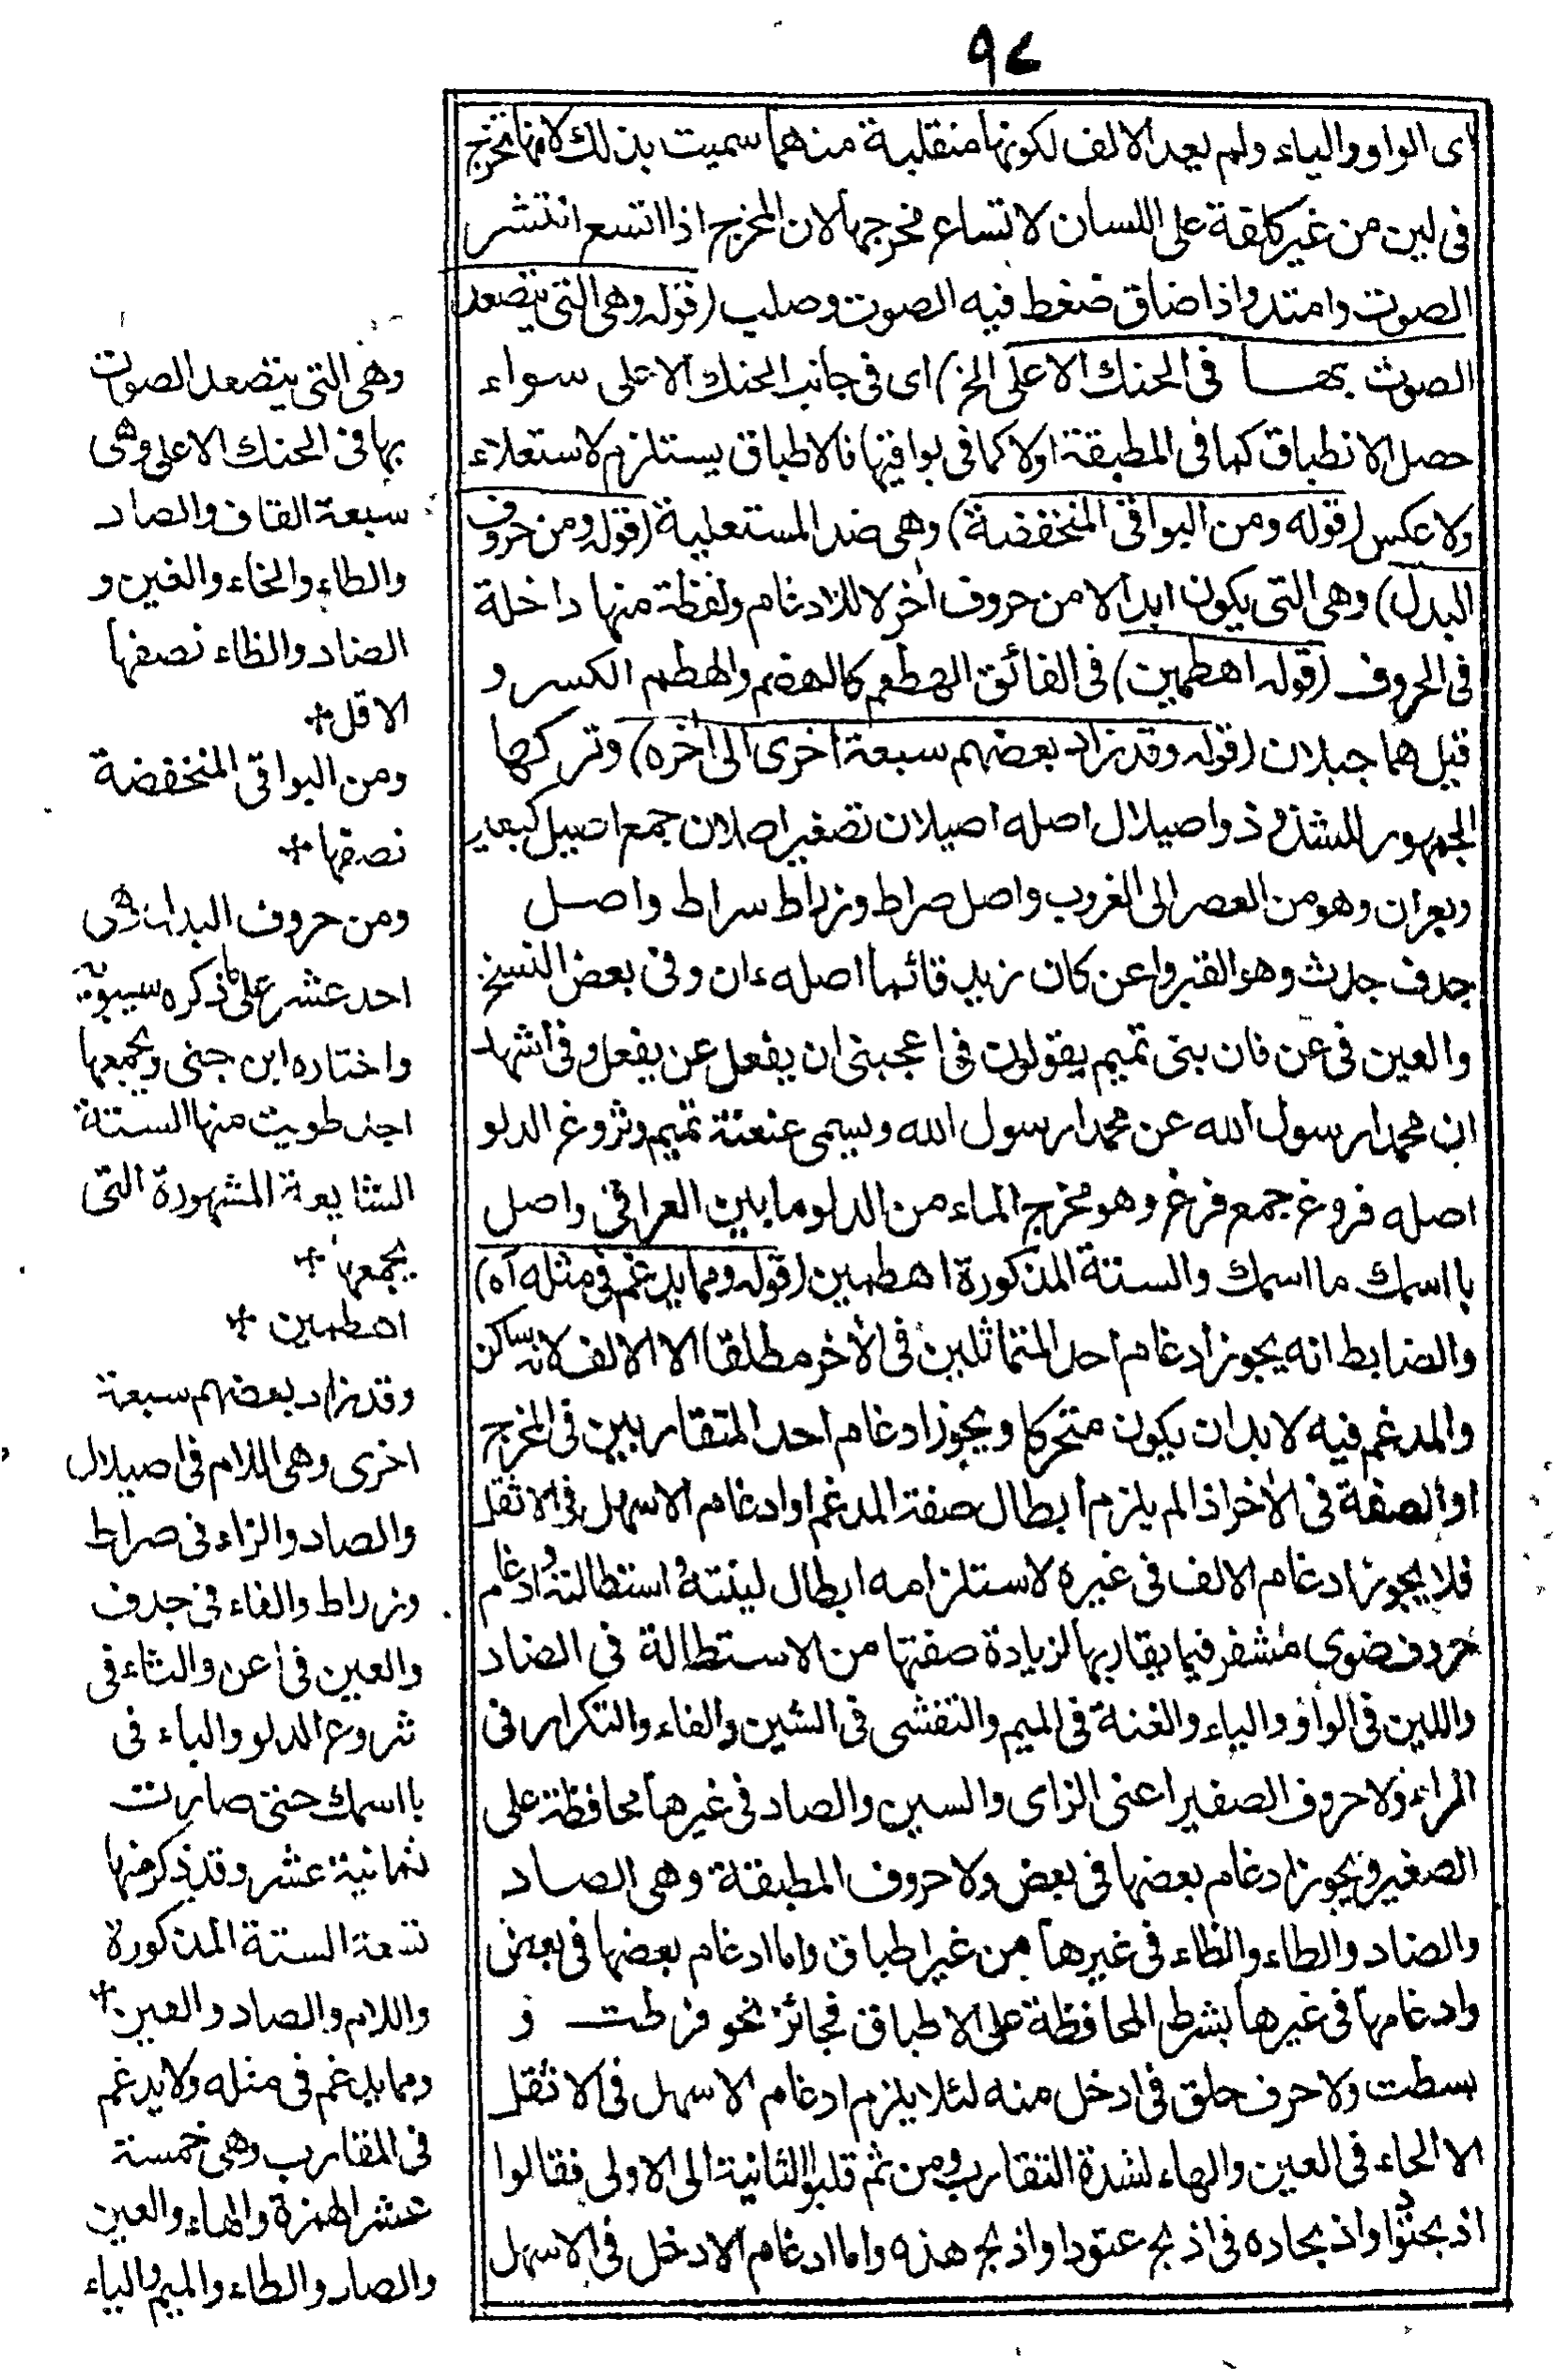 ٩٤
اى الواو والياء ولم يعد الالف لكونها منقلبة منهما سميت بذلك لانها تخرج
فى لين من غير كلفة على اللسان لاتساع مخرجها لان المخرج اذا اتسع انتشر
الصوت وامتد واذا ضاق ضغط فيه الصوت وصلب (قوله وهى التى يتصعد
الصوت بهـا فى الحنك الاعلى الخ) اى فى جانب الحنك الاعلى سواء
حصل الانطباق كما فى المطبقة اولا كما فى بواقيها فالاطباق يستلزم لاستعلاء
ولا عكس (قوله ومن البواقى المنخفضة) وهى ضد المستعلية (قوله ومن حروف
البدل) وهى التى يكون ابدالا من حروف اخر لا للادغام ولفظة منها داخلة
فى الحروف (قوله اهطمين) فى الفائق الهطم كالهضم والهطم الكسر و
قيل هما جبلان (قوله وقد زاد بعضهم سبعة اخرى الى اخره) وتركها
الجمهور للشذوذ واصيلال اصله اصيلان تصغير اصلان جمع اصيل كبعير
وبعران وهو من العصر الى الغروب واصل صراط وزراط سراط واصـل
جدف جدث وهو القبر واعن كان زيد قائما اصله ءان وفى بعض النسخ
والعين فى عن فان بنى تميم يقولون فى اعجبنى ان يفعل عن يفعل وفى اشهد
ان محمدا رسول الله عن محمدا رسول الله ويسمى عنعنة تميم وثروغ الدلو
اصله فروغ جمع فرغ وهو مخرج الماء من الدلو ما بين العراقى واصل
با اسمك ما اسمك والستة المذكورة اهطمين (قوله ومما يدغم فى مثله آه)
والضابط انه يجوز ادغام احد المتماثلين فى الأخر مطلقا الا الالف لانه ساكن
والمدغم فيه لا بد ان يكون متحركا ويجوز ادغام احد المتقاربين فى المخرج
او الصفة فى الأخر اذا لم يلزم ابطال صفة المدغم او ادغام الاسهل فى الاثقل
فلا يجوز ادغام الالف فى غيره لاستلزامه ابطال لينته واستطالته ولا ادغام
حروف ضوى مشفر فيما يقاربها لزيادة صفتها من الاستطالة فى الضاد
واللين فى الواو والياء والغنة فى الميم والتفشى فى الشين والفاء والتكرار فى
الراء ولا حروف الصفير اعنى الزاى والسين والصاد فى غيرها محافظة على
الصفير ويجوز ادغام بعضها فى بعض ولا حروف المطبقة وهى الصـاد
والضاد والطاء والظاء فى غيرها من غير اطباق واما ادغام بعضها فى بعض
وادغامها فى غيرها بشرط المحافظة على الاطباق فجائز نحو فرطت و
بسطت ولا حرف حلق فى ادخل منه لئلا يلزم ادغام الاسهل فى الاثقل
الا الحاء فى العين والهاء لشدة التقارب ومن ثم قلبوا الثانية الى الاولى فقالوا
اذبحتودا واذبحاده فى اذبح عتودا واذبح هذه واما ادغام الادخل فى الاسهل
وهى التى يتصعد الصوت
بها فى الحنك الاعلى وهى
سبعة القاف والصاد
والطاء والخاء والغين و
الضاد والظاء نصفها
الاقل
ومن البواقى المنخفضة
نصفها
ومن حروف البدل وهى
احد عشر على ما ذكره سيبويه
واختاره ابن جنى ويجمعها
اجد طويت منها الستة
الشايعة المشهورة التى
يجمعها
اهطمين
وقد زاد بعضهم سبعة
اخرى وهى اللام فى اصيلال
والصاد والزاء فى صراط
وزراط والفاء فى جدف
والعين فى أعن والثاء فى
ثروغ الدلو والباء فى
با اسمك حتى صارت
ثمانية عشر وقد ذكر منها
تسعة الستة المذكورة
واللام والصاد والعين
ومما يدغم فى مثله ولا يدغم
فى المقارب وهى خمسة
عشر الهمزة والهاء والعين
والصاد والطاء والميم والياء